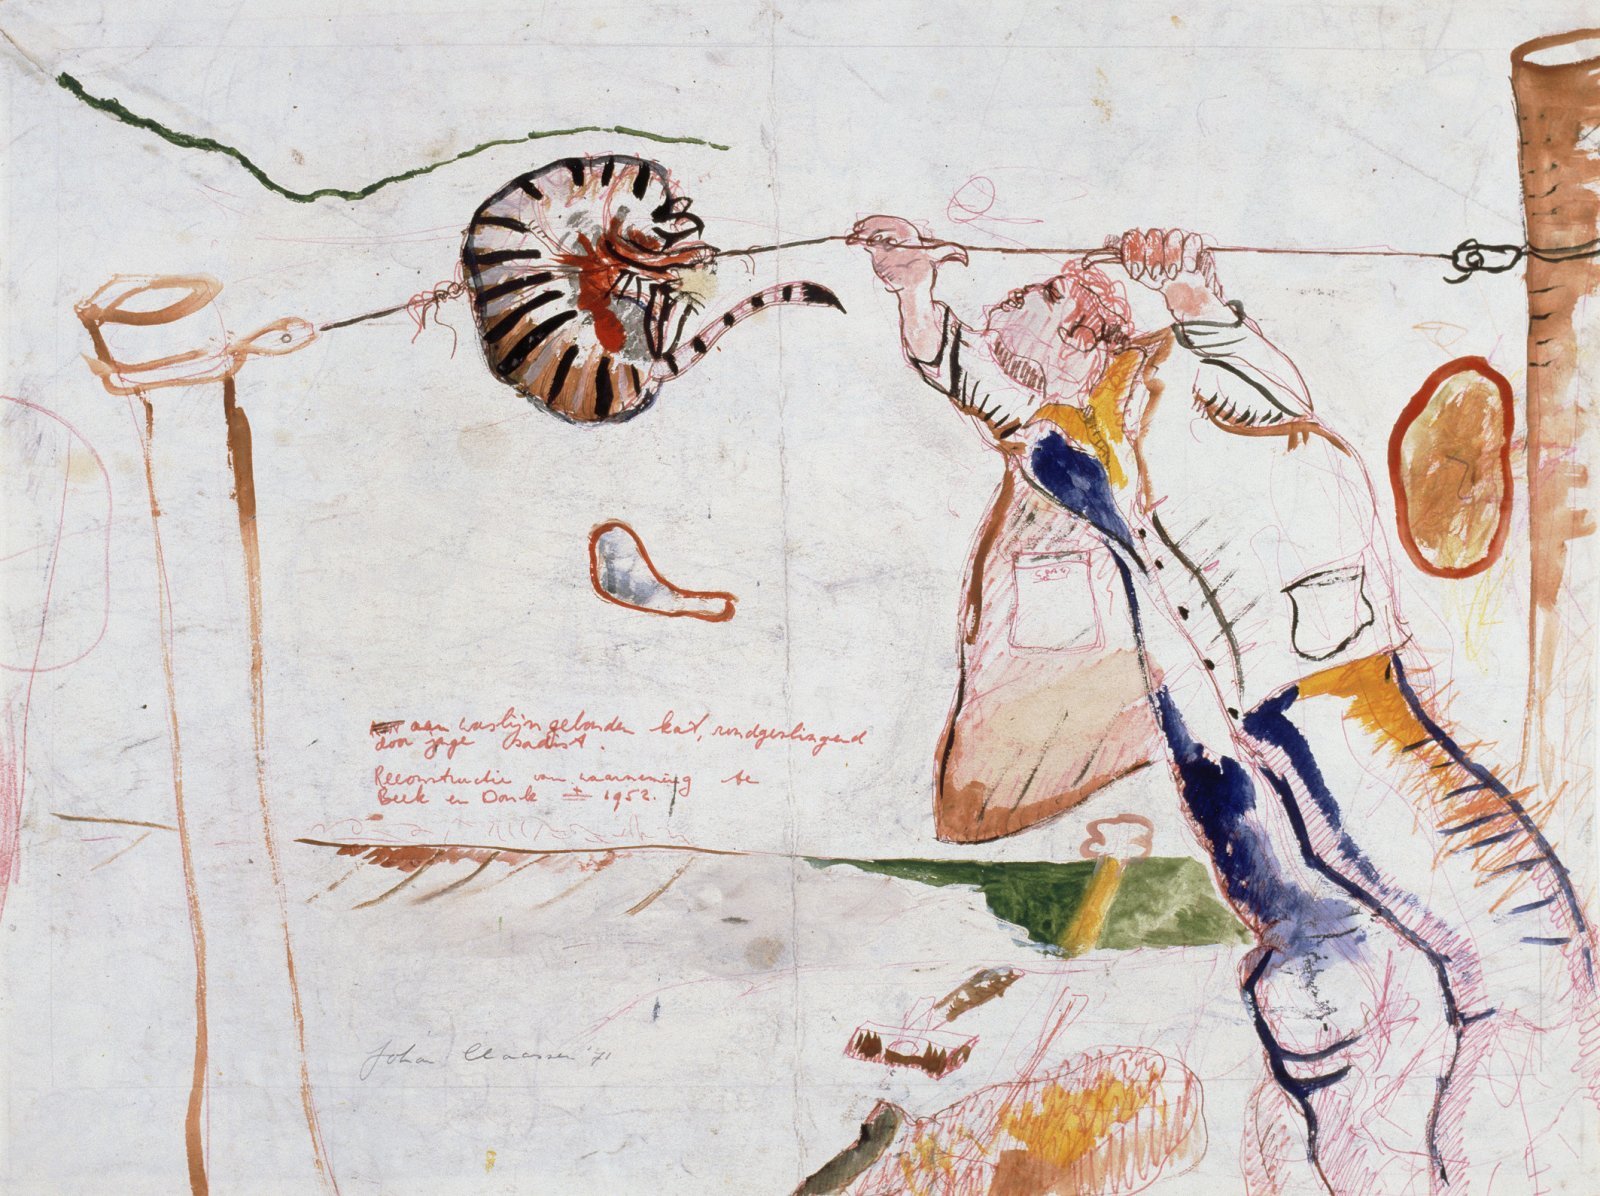 aan waslijn gebonden kat, rondgeslingerd
door jeugd sadist.
Reconstructie van waarneming te
Beek en Donk ± 1952.
Johan Claassen '71